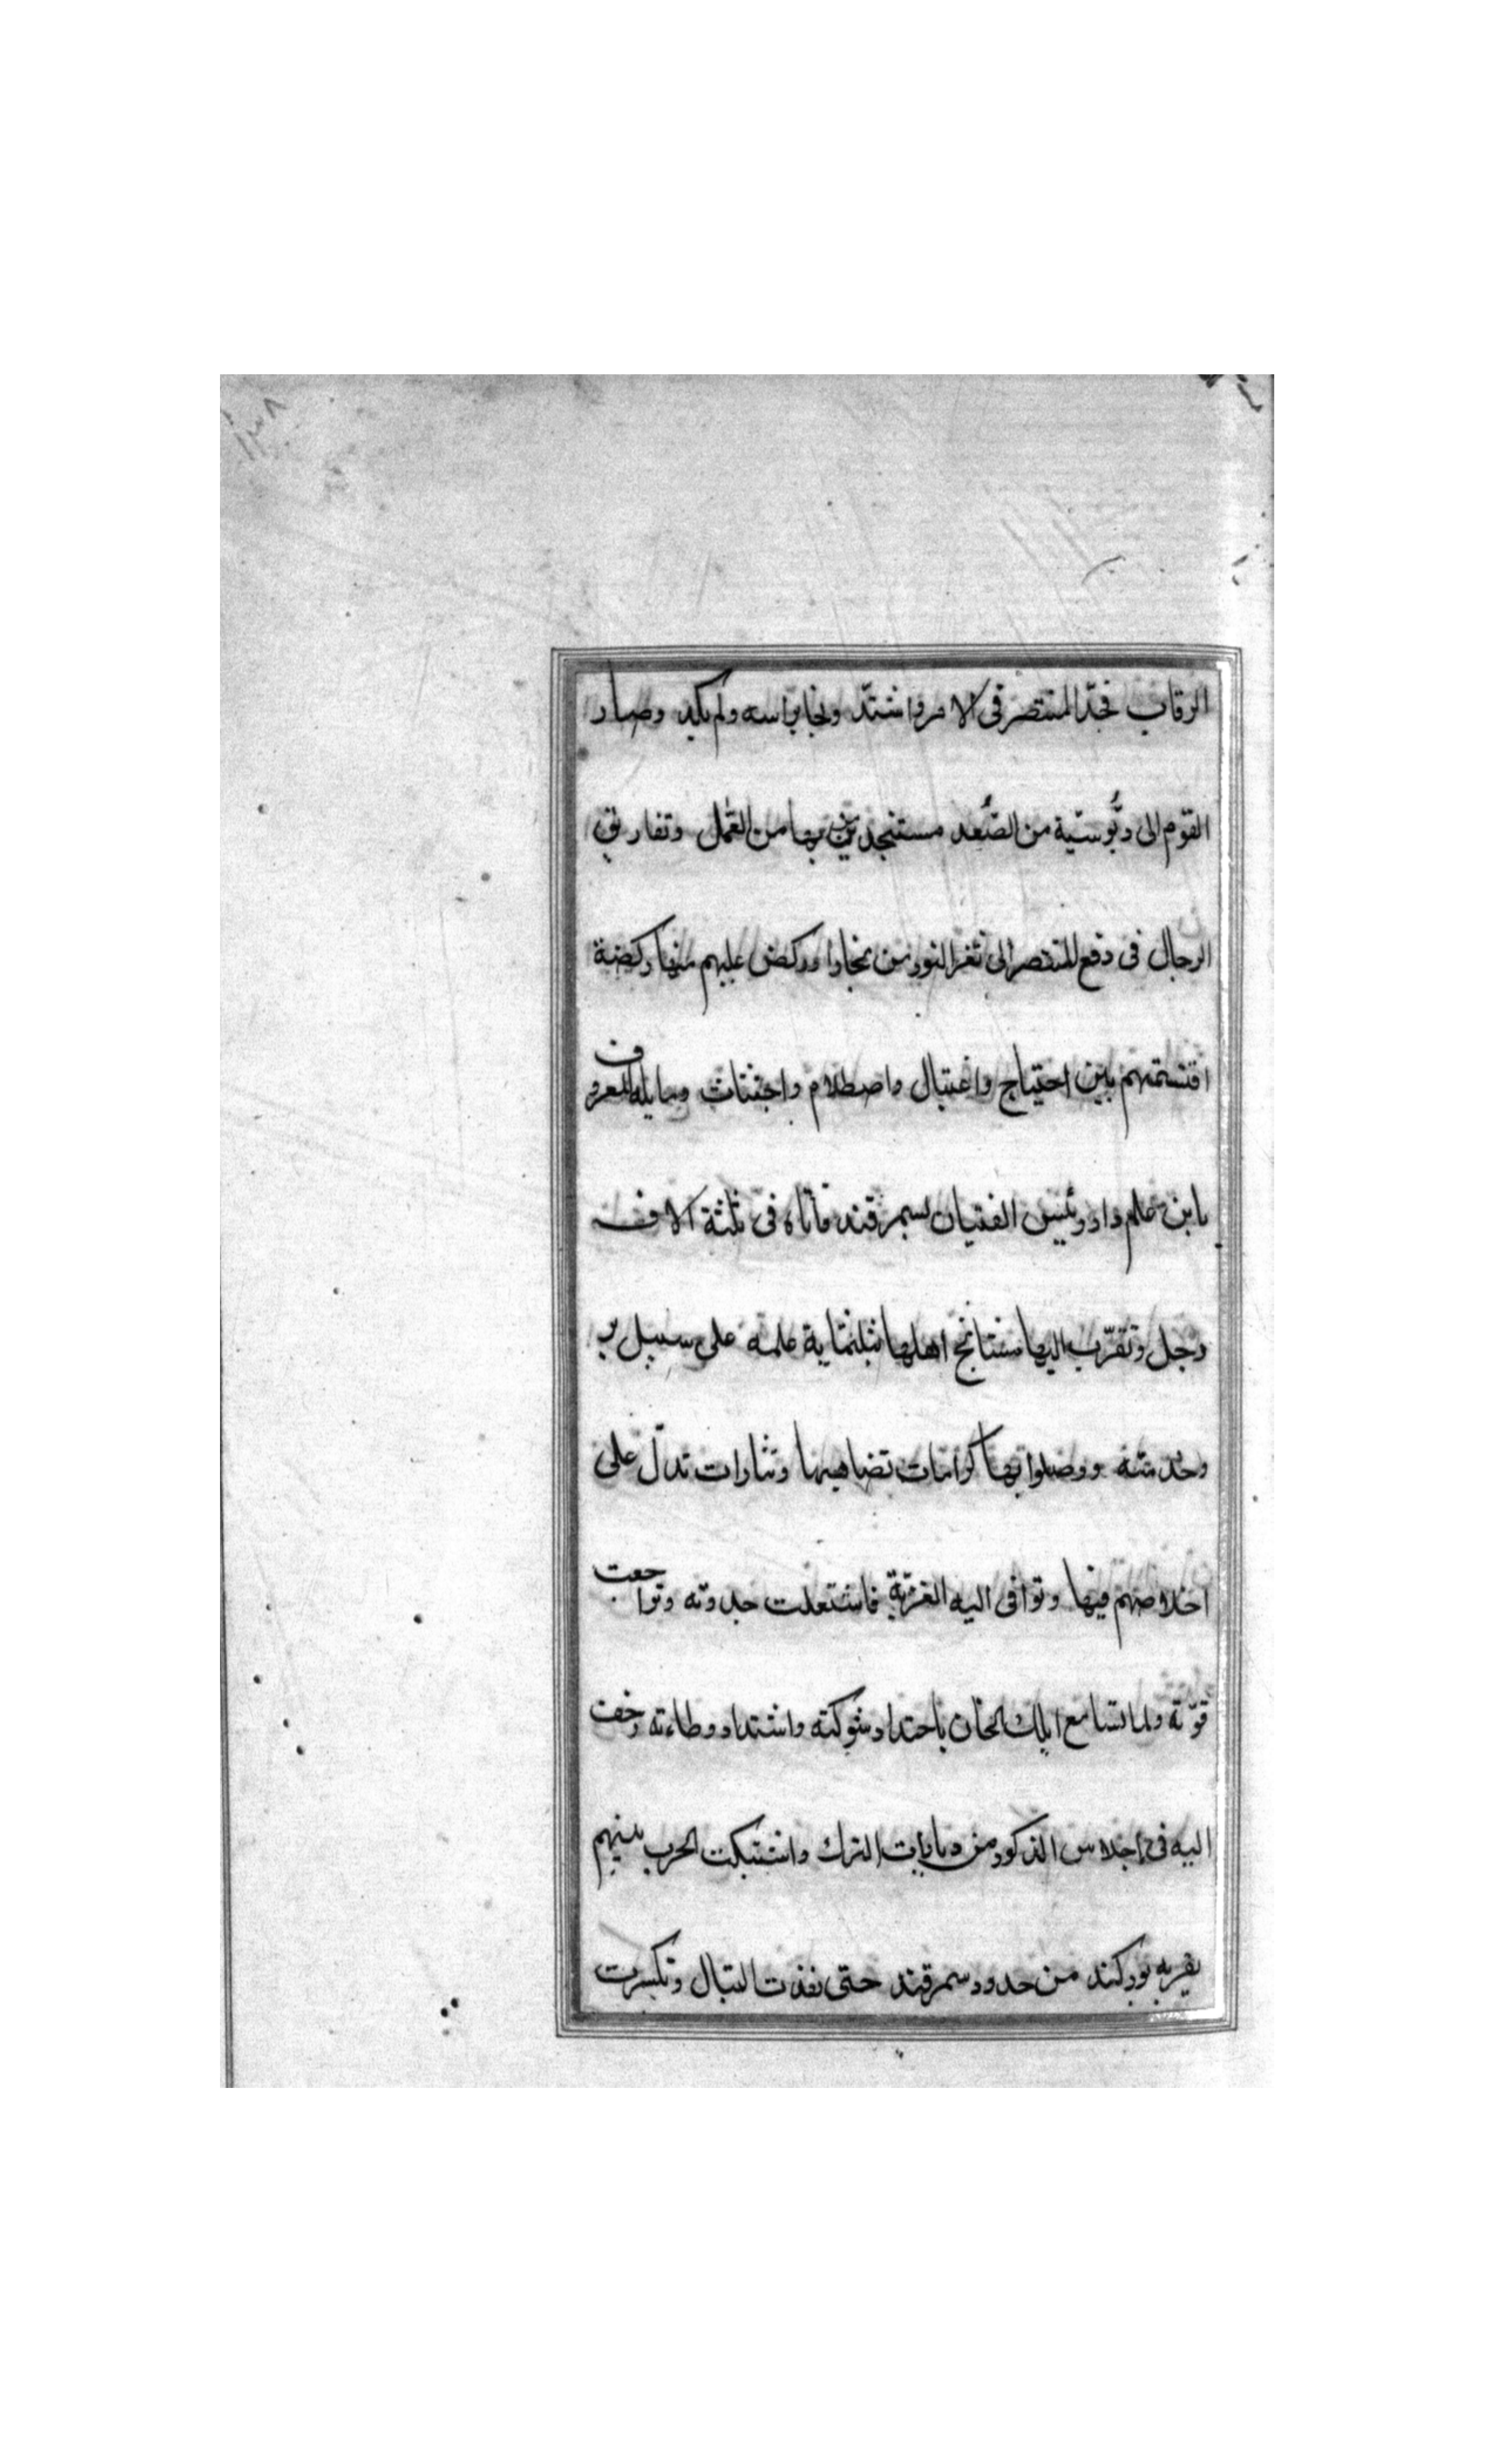 ١٣٨
الرقاب فجدّ المنتصر فى الامر واشتدّ ونجا براسه ولم يكد وصار
القوم الى دبُوسيّة من الصُّغد مستنجدين بمن بها من العمّال وتفاريق
الرجال فى دفع المنتصر الى ثغر النور من بخارا وركض عليهم منها ركضة
اقتسمتهم بين احتياج واغتيال واصطلام واجتثاث ومايله المعروف
بابن علم دار رئيس الفتيان بسمرقند فاتاه فى ثلثة الاف
رجل وتقرّب اليها مشايخ اهلها بثلثماية علمه على سبيل بر
وخدمته ووصلوا بها كرامات تضاهيها ونثارات تدلّ على
اخلاصهم فيها وتوافى اليه الغزّية فاشتعلت جدوته وتراجعت
قوّته ولما تسامع ايلك الخان باحتداد شوكته واشتداد وطاءته زحف
اليه فى اجلاس الذكور من وبابات الترك واشتبكت الحرب بينهم
بقربه بوركند من حدود سمرقند حتى نفذت النبال وتكسرت